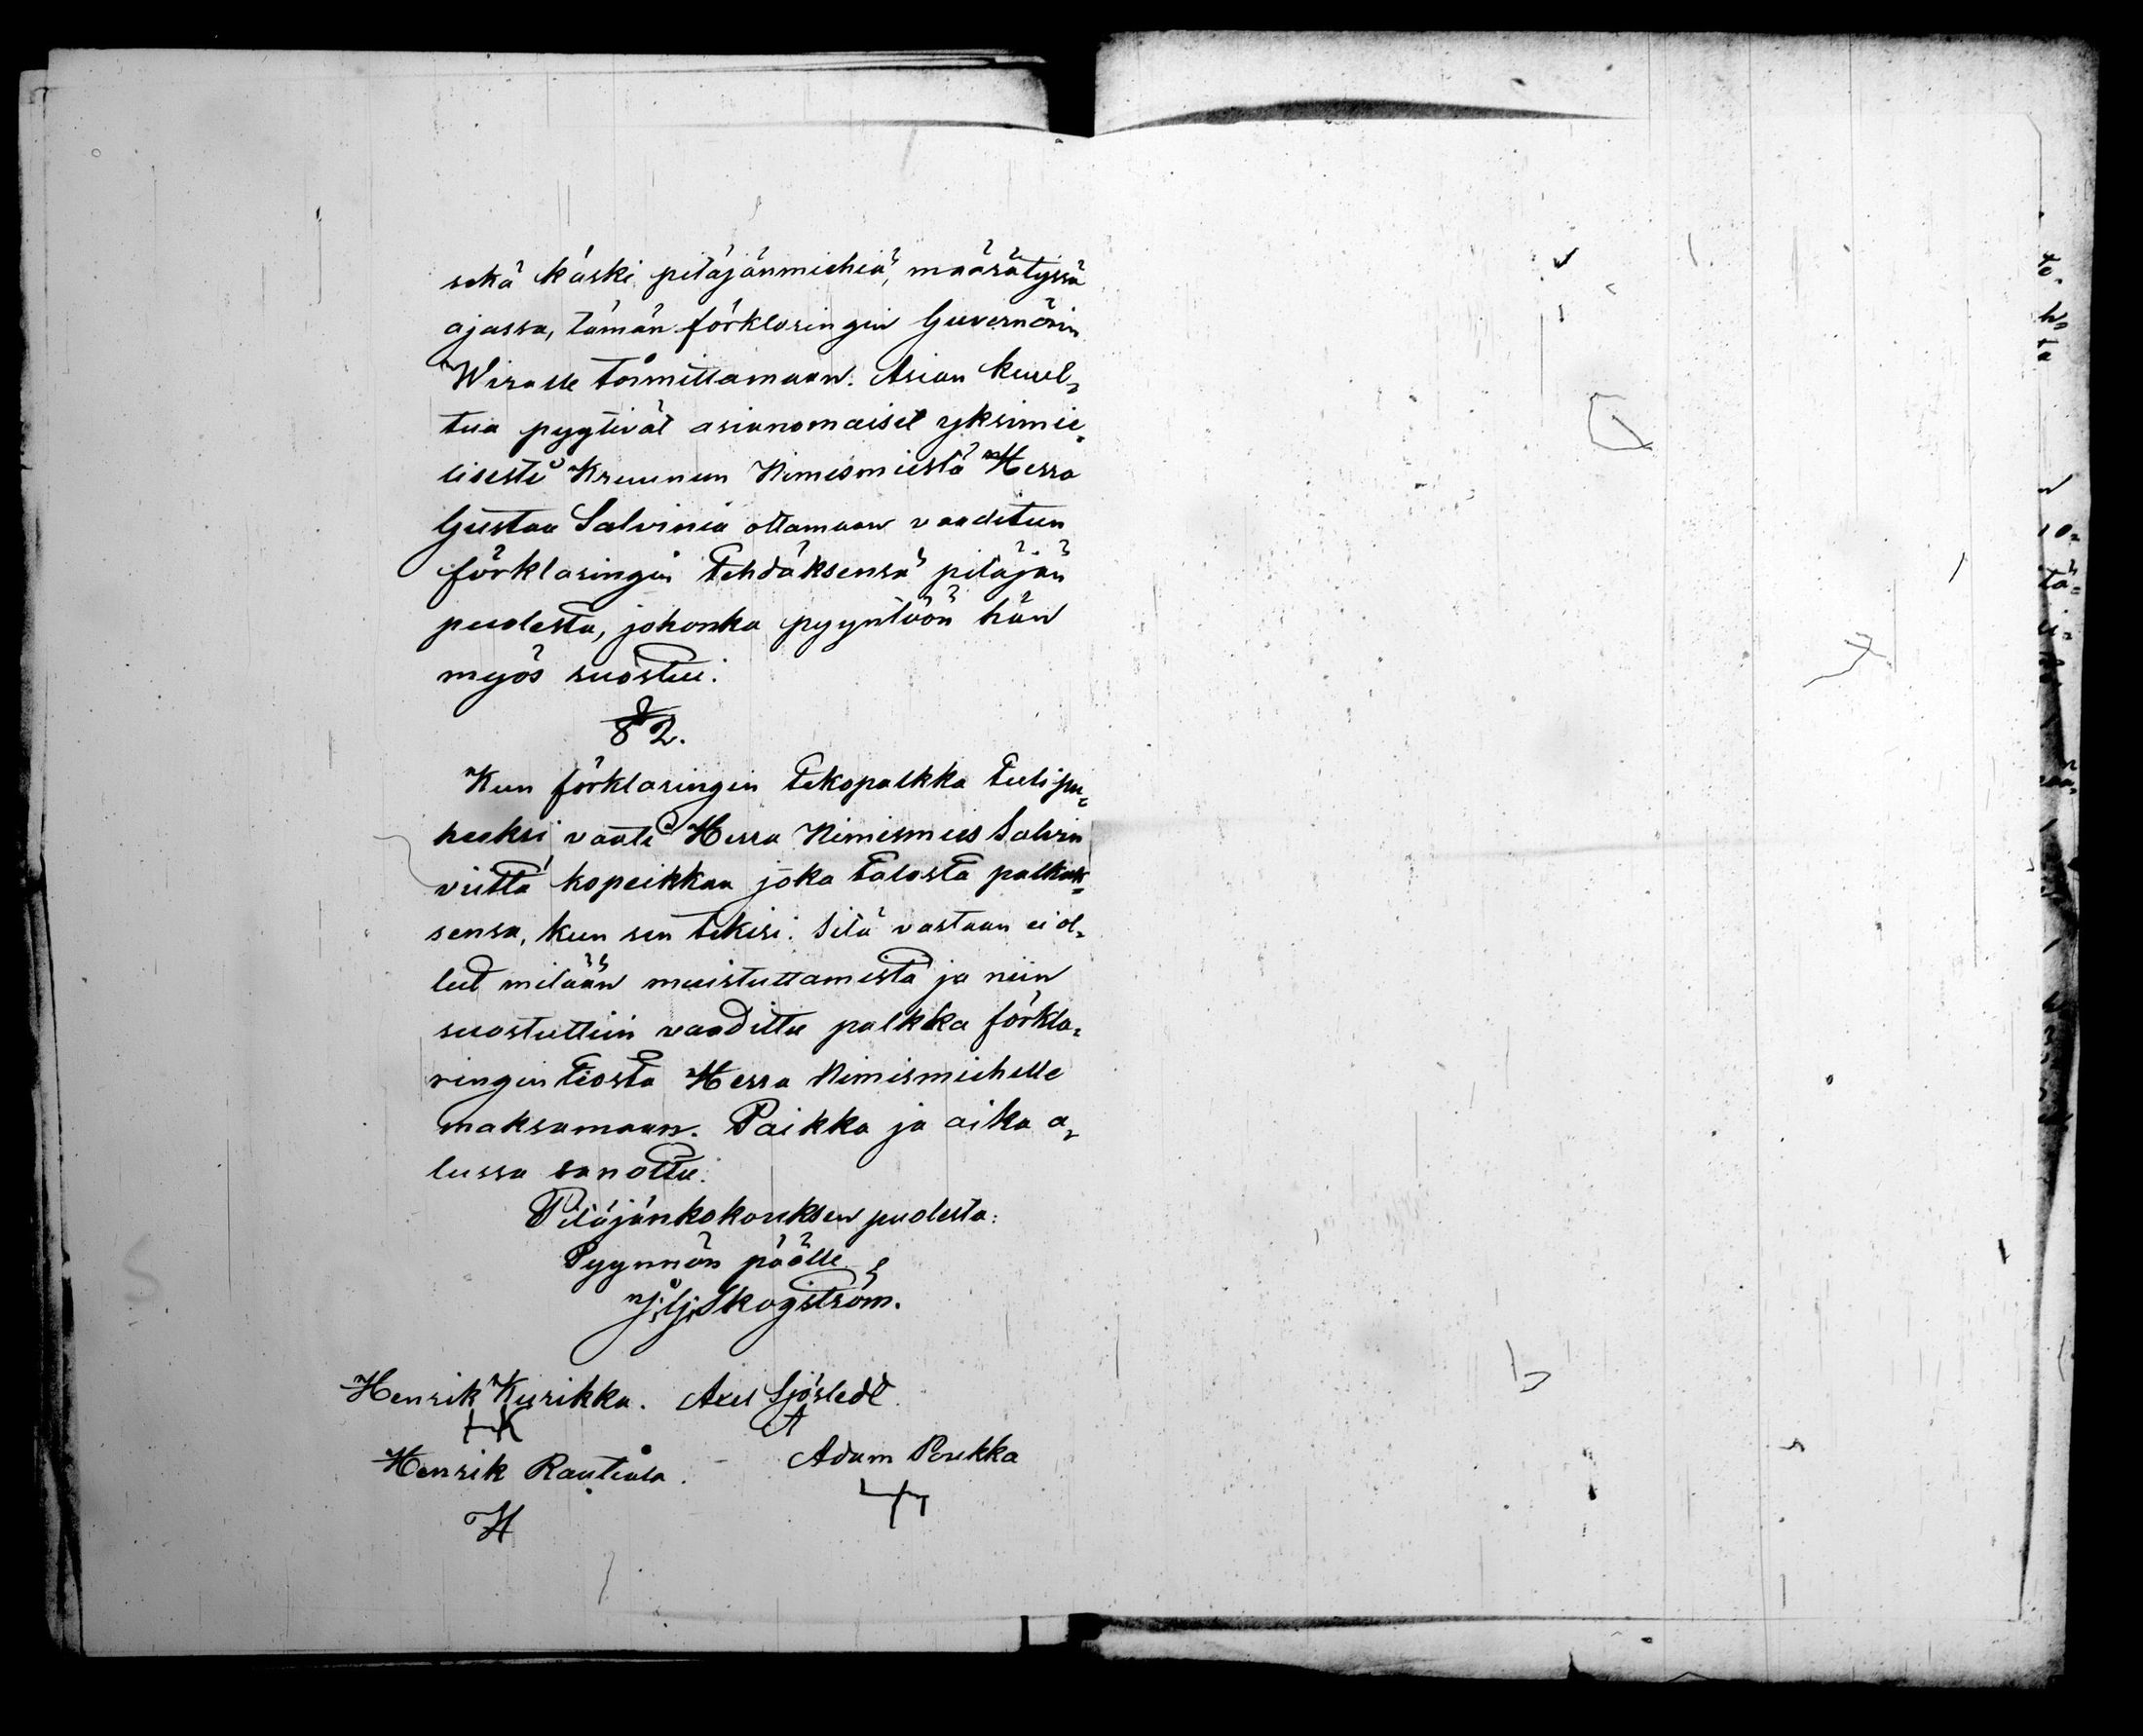 sekä käski pitäjänmiehiä, määrätyssä
ajassa, tämän förklaringin Guvernörin
Wiralle toimittamaan. Asian kuul-
tua pyytivät asianomaiset yksimie-
lisesti Kruunun Nimismiestä Herra
Gustaa Salvinia ottamaan vaaditun
förklaringin tehdäksensä pitäjän
puolesta, johonka pyyntöön hän
myös suostui.
§ 2.
Kun förklaringin tekopalkka tuli pu-
heeksi vaati Herra Nimismies Salvin
viittä kopeikkaa joka talosta palkak-
sensa, kun sen tekisi. Sitä vastaan ei ol-
lut mitään muistuttamista ja niin
suostuttiin vaadittu palkka förkla-
ringin tiosta Herra Nimismiehelle
maksamaan. Paikka ja aika a-
lussa sanottu.
Pitäjänkokouksen puolesta:
Pyynnön päälle
J. Gj. Skogström.
Henrik Kurikka. Axel Sjöstedt.
HK A
Henrik Rautiala. Adam Poukka
H